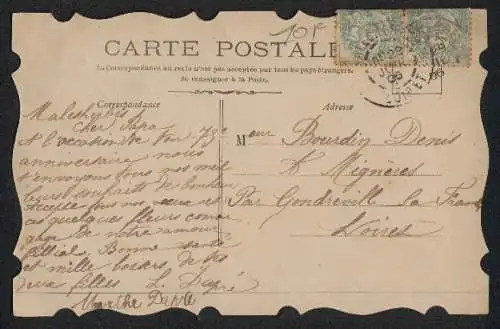 10F
CARTE POSTALE
La Correspondance au recto n'est pas acceptée par tous les pays étrangers.
Se renseigner à la Poste.
Correspondance
Adresse
Malesherbes
Cher Papa
A l'occasion de ton 73e
anniversaire nous
t'envoyons tous nos meil
leurs souhaits de bonheur
accepte tous nos vœux et
ces quelques fleurs comme
gage de notre amour
fillial. Bonne santé
et mille baisers de tes
deux filles L. Dupré
Marthe Dupré
Mr Bourdin Denis
A Mignères
Par Gondreville la Franche
Loiret